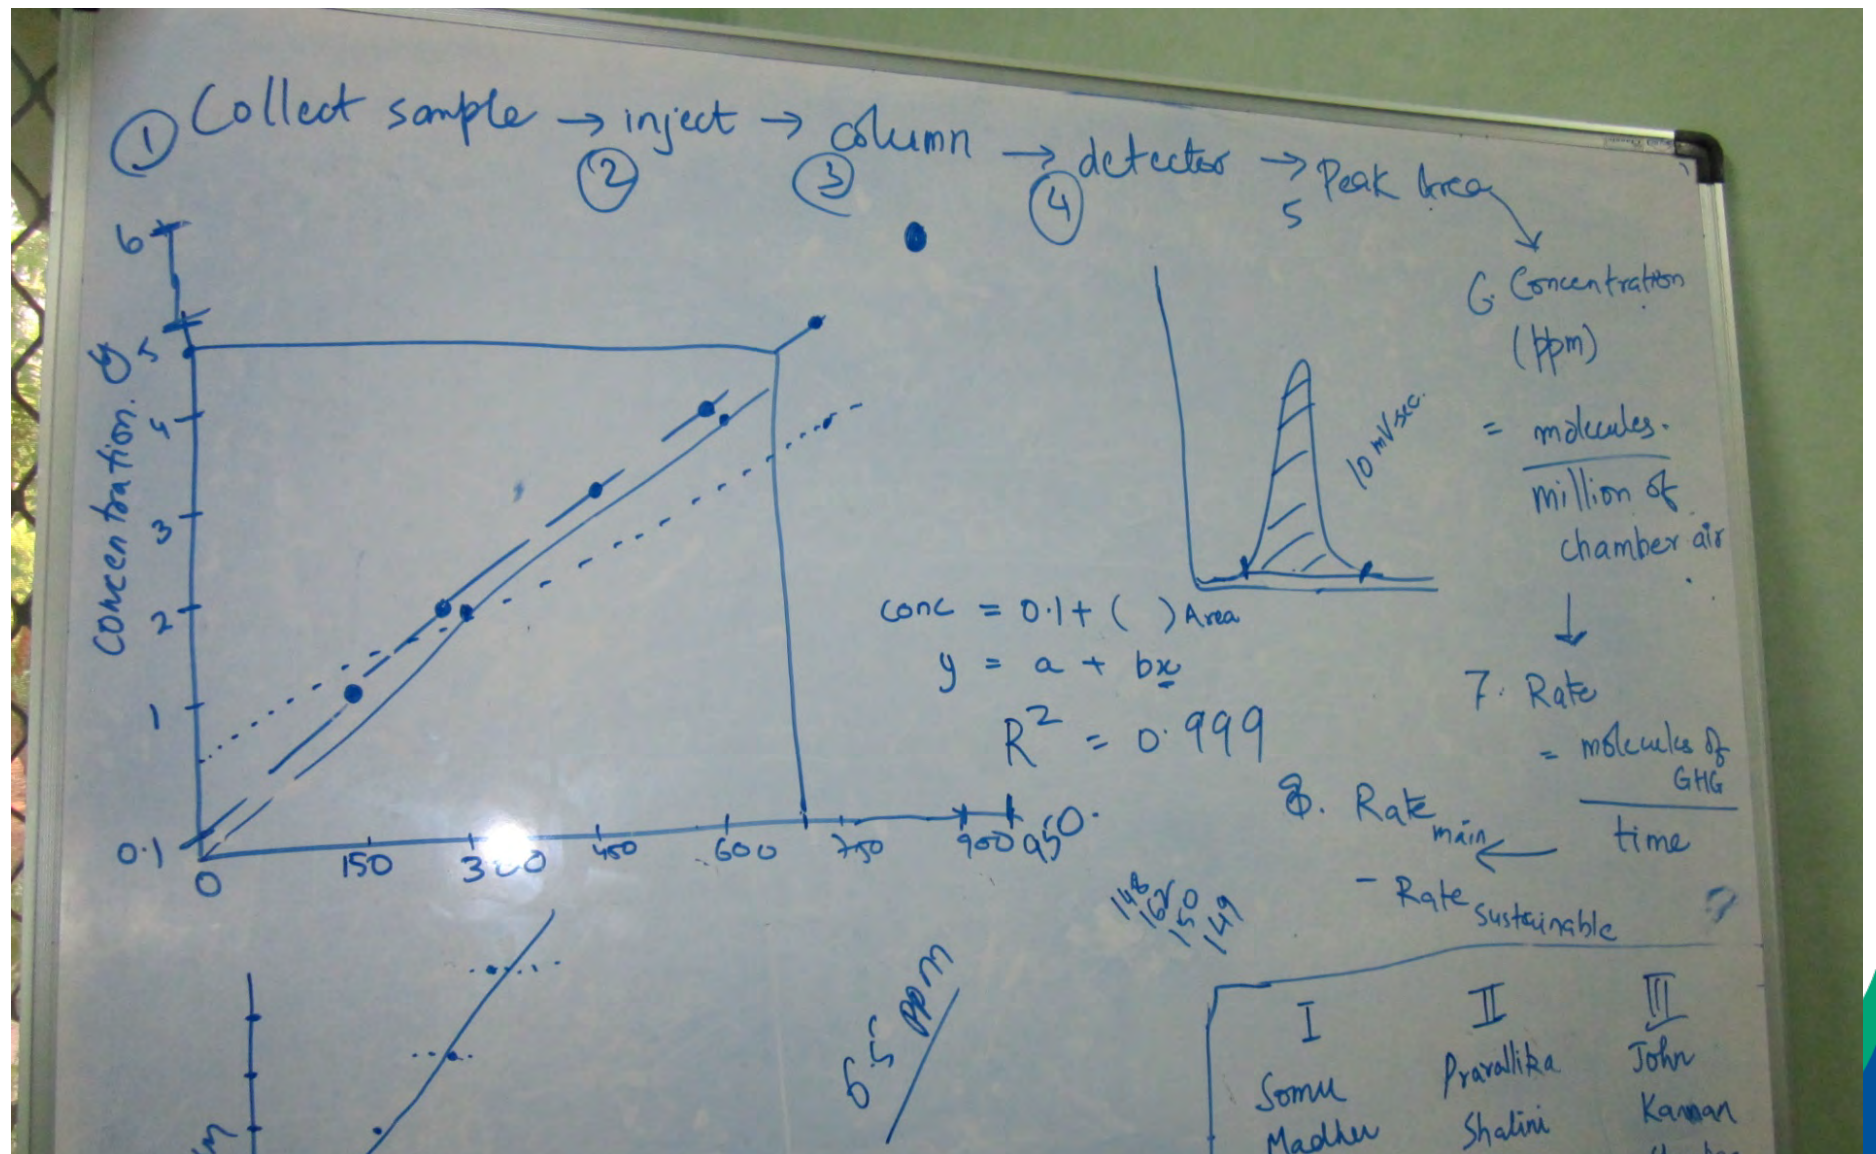 ① Collect sample → inject → column → detector → Peak Area
② ③ ④ 5
6. Concentration
(ppm)
= molecules.
million of
chamber air
↓
7. Rate
= molecules of
GHG
time
8. Rate main ←
- Rate sustainable
Concentration. y
6
5
4
3
2
1
0.1
0 150 300 450 600 750 900 950.
10 mV sec.
conc = 0.1 + ( ) Area
y = a + bx
R² = 0.999
148
162
150
149
PPM
I II III
Somu Pravallika John
Madhu Shalini Kannan